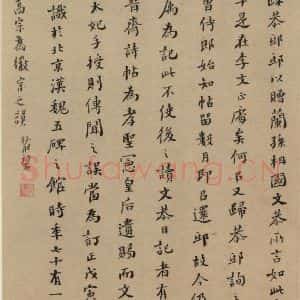 歸恭邸邸以贈蘭孫相國文恭所言如此
平是在李文正廣矣何以又歸恭邸詢
曾侍邸始知帖留數月即已還邸故今仍
屬為記此不使後之讀文恭日記者有
晉齋詩帖為孝聖憲皇后遺賜而文
太妃手授則傳聞之誤當為訂正戊寅
識於北京漢魏五碑之館時年七十有一
高宗為徽宗之誤